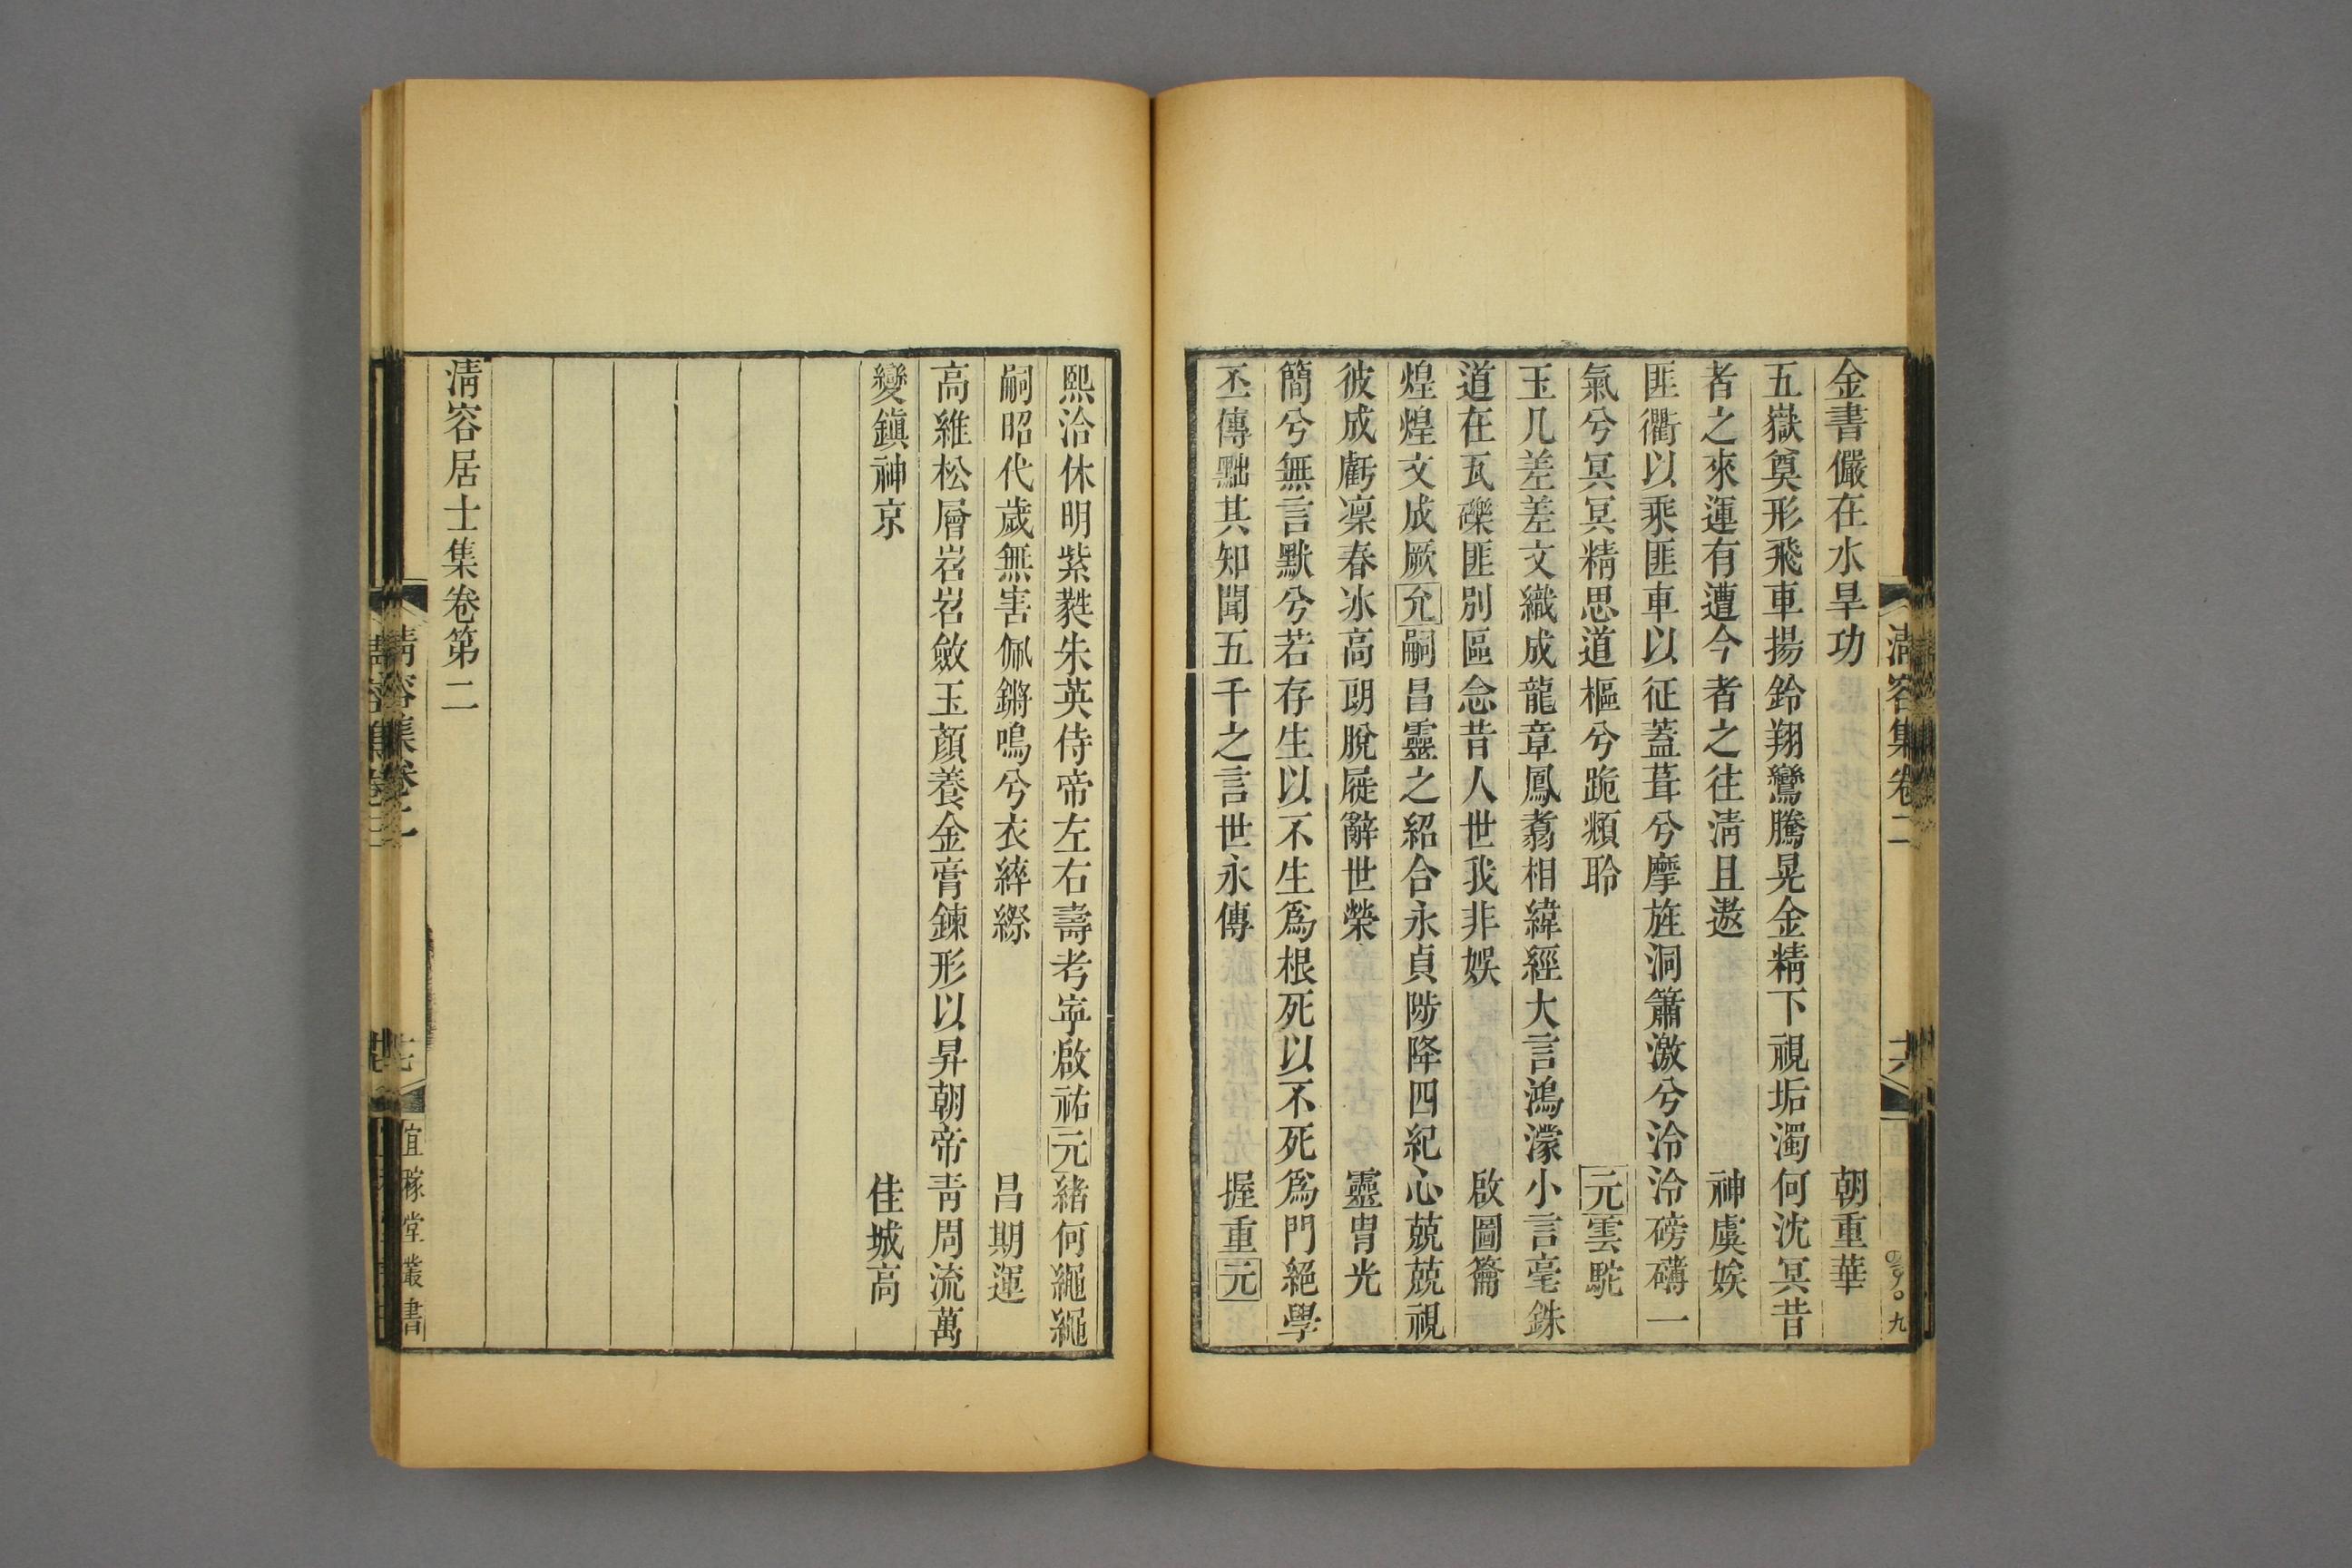 金書儼在水旱功　朝重華
五嶽奠形飛車揚鈴翔鸞騰晃金精下視垢濁何沈冥昔
者之來運有遭今者之往淸且遨　神虞娭
匪衢以乘匪車以征蓋葺兮摩旌洞簫激兮泠泠磅礴一
氣兮冥冥精思道樞兮跪頫聆　元雲駝
玉几差差文織成龍章鳳翥相緯經大言鴻濛小言毫銖
道在瓦礫匪別區念昔人世我非娛　啟圖籥
煌煌文成厥允嗣昌靈之紹合永貞陟降四紀心兢兢視
彼成虧凜春冰高朗脫屣辭世榮　靈胄光
簡兮無言默兮若存生以不生爲根死以不死爲門絕學
丕傳黜其知聞五千之言世永傳　握重元
淸容集卷二
六
九
熙洽休明紫蕤朱英侍帝左右壽考寧啟祐元緒何繩繩
嗣昭代歲無害佩鏘鳴兮衣綷縩　昌期運
高維松層岩岩斂玉顏養金膏鍊形以昇朝帝靑周流萬
變鎮神京　佳城高
淸容居士集卷第二
淸容集卷二
七
宜稼堂叢書